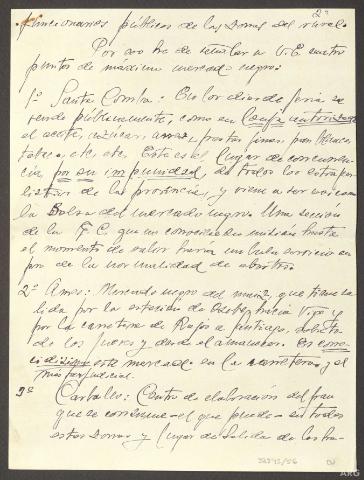 2ª
funcionarios públicos de las zonas del rural.
Por eso he de señalar a V.E. cuatro
puntos de máximo mercado negro:
1º Santa Comba: En los días de feria se
vende públicamente, como en
el aceite, azúcar, arroz, pastas finas, pan blanco,
tabaco, etc, etc. Este es el lugar de concurren-
cia por su impunidad de todos los estraper-
listas de la provincia, y viene a ser así como
la Bolsa del mercado negro. Una sección
de la F.C. que no conociera nadie hasta
el momento de haría un buen servicio en
pro de la normalidad de abastos.
2º Ames: Mercado negro del maíz, que tiene sa-
lida por la estación de hacia Vigo y
por la carretera de a Santiago,
de los jueces y desde el almacen. Es cono-
cidísimo este mercado en la carretera y el
más perjudicial.
3º Carballo: Centro de elaboración del pan
que se consume el que puede en todas
estas zonas y lugar de salida de los
52542/56
ARG